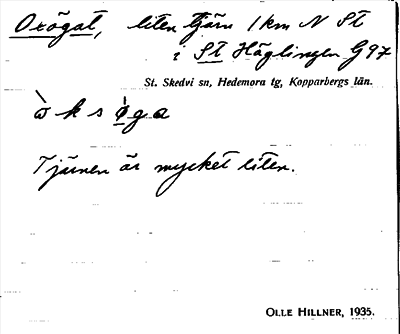 Oxögat, liten tjärn 1 km N St
i St Häglingen G 97
St. Skedvi sn, Hedemora tg, Kopparbergs län.
ò k s ø̀ g a
Tjärnen är mycket liten.
OLLE HILLNER, 1935.